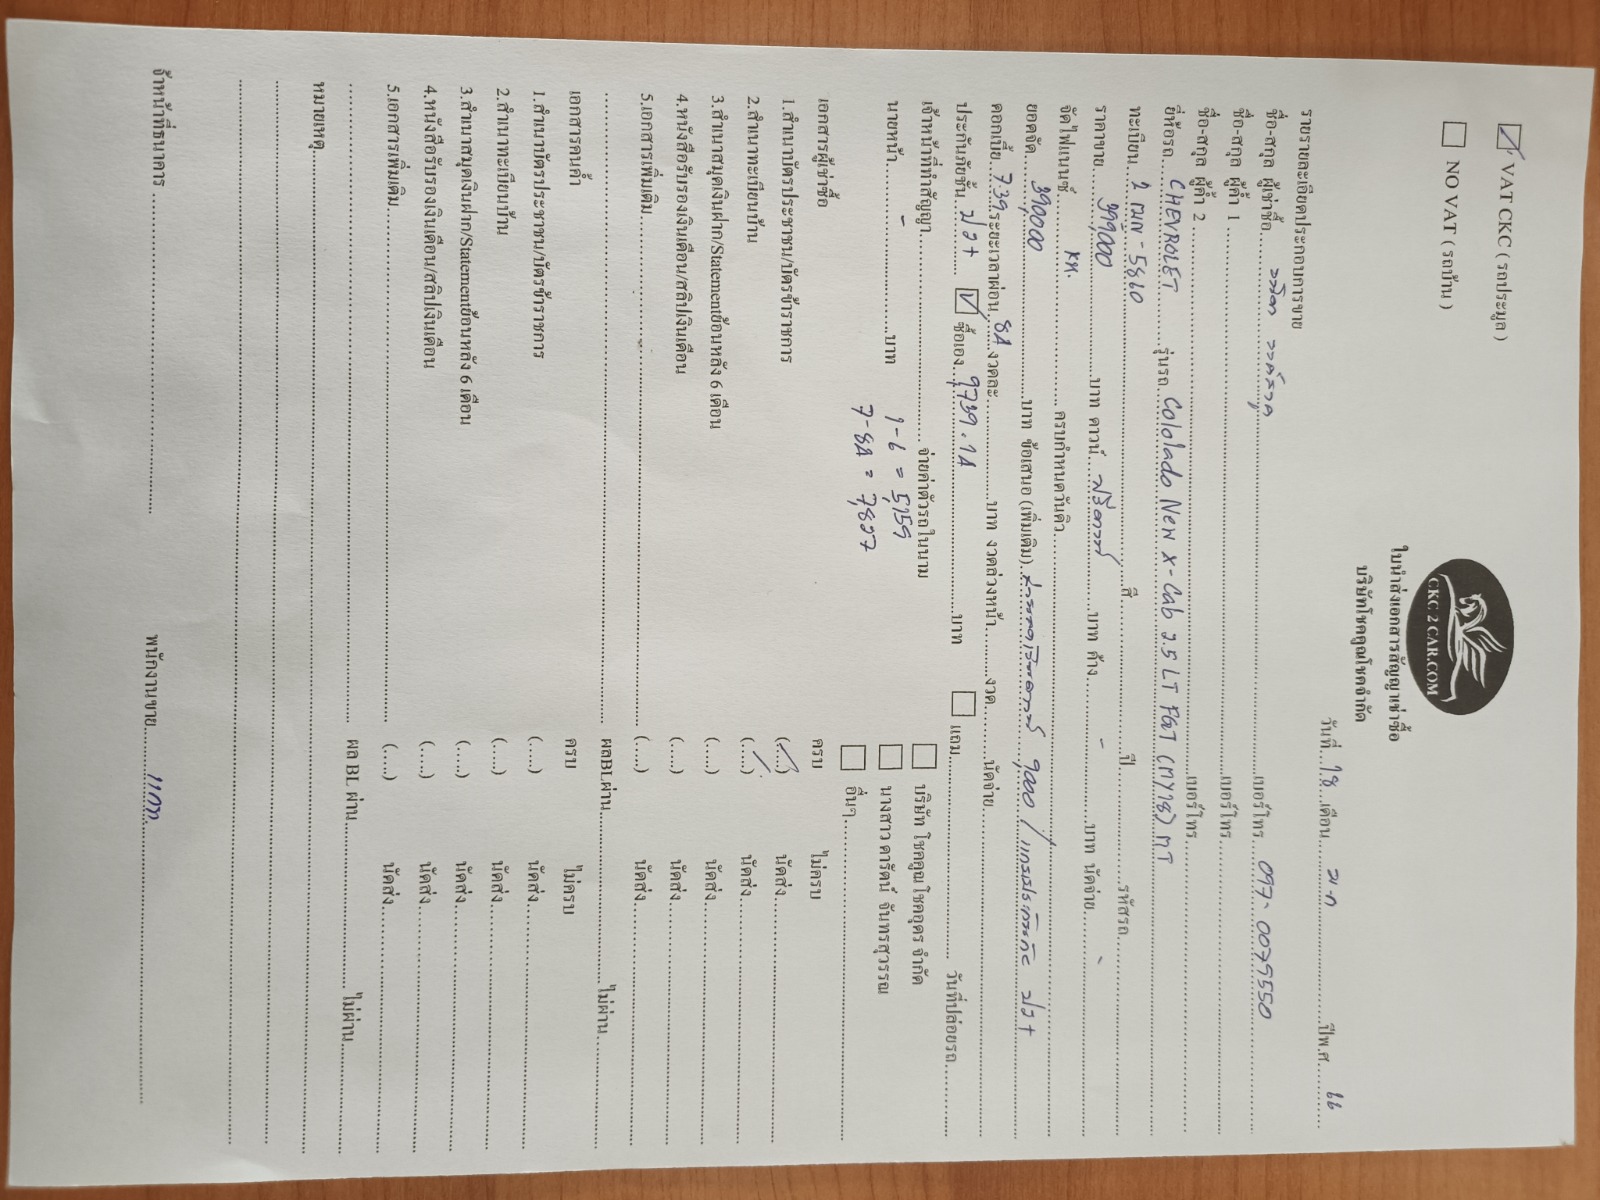 CKC 2 CAR.COM
VAT CKC ( รถประมูล )
NO VAT ( รถบ้าน )
ใบนำส่งเอกสารสัญญาเช่าซื้อ
บริษัทโชคคูณโชคจำกัด
วันที่...18...เดือน......ม.ค..........ปีพ.ศ.........66....
รายรายละเอียดประกอบการขาย
ชื่อ-สกุล ผู้เช่าซื้อ..........เบอร์โทร...097-0075550
ชื่อ-สกุล ผู้ค้ำ 1 ..........เบอร์โทร..........
ชื่อ-สกุล ผู้ค้ำ 2 ..........เบอร์โทร..........
ยี่ห้อรถ....CHEVROLET..........รุ่นรถ...Cololado New X-Cab 2.5 LT FGT (MY18) MT
ทะเบียน...2 ฒน - 5860..........สี..........ปี..........รหัสรถ..........
ราคาขาย......399,000..........บาท ดาวน์...ฟรีดาวน์..........บาท ค้าง..........-..........บาท นัดจ่าย..........-
จัดไฟแนนซ์..........KK...........ครบกำหนดวันคิว..........
ยอดจัด......390,000..........บาท ข้อเสนอ (เพิ่มเติม)..........9,000 / แถมประกันภัย ป2+
ดอกเบี้ย..7.39..ระยะเวลาผ่อน..84..งวดละ..........บาท งวดล่วงหน้า..........งวด..........นัดจ่าย..........
ประกันภัยชั้น...ป2+...... ซื้อเอง...9,739.14..........บาท แถม.......... วันที่ปล่อยรถ..........
เจ้าหน้าที่ทำสัญญา..........จ่ายค่าตัวรถในนาม บริษัท โชคคูณโชคอุดร จำกัด
นายหน้า..........-..........บาท 1-6 = 5,159 นางสาว ดารัตน์ จันทรสุวรรณ
7-84 = 7,827 อื่นๆ..........
เอกสารผู้เช่าซื้อ ครบ ไม่ครบ
1.สำเนาบัตรประชาชน/บัตรข้าราชการ (....) นัดส่ง..........
2.สำเนาทะเบียนบ้าน (....) นัดส่ง..........
3.สำเนาสมุดเงินฝาก/Statementย้อนหลัง 6 เดือน (....) นัดส่ง..........
4.หนังสือรับรองเงินเดือน/สลิปเงินเดือน (....) นัดส่ง..........
5.เอกสารเพิ่มเติม.......... (....) นัดส่ง..........
.......... ผลBLผ่าน..........ไม่ผ่าน..........
เอกสารคนค้ำ ครบ ไม่ครบ
1.สำเนาบัตรประชาชน/บัตรข้าราชการ (....) นัดส่ง..........
2.สำเนาทะเบียนบ้าน (....) นัดส่ง..........
3.สำเนาสมุดเงินฝาก/Statementย้อนหลัง 6 เดือน (....) นัดส่ง..........
4.หนังสือรับรองเงินเดือน/สลิปเงินเดือน (....) นัดส่ง..........
5.เอกสารเพิ่มเติม.......... (....) นัดส่ง..........
.......... ผล BL ผ่าน..........ไม่ผ่าน..........
หมายเหตุ..........
จ้าหน้าที่ธนาคาร .......... พนักงานขาย..........